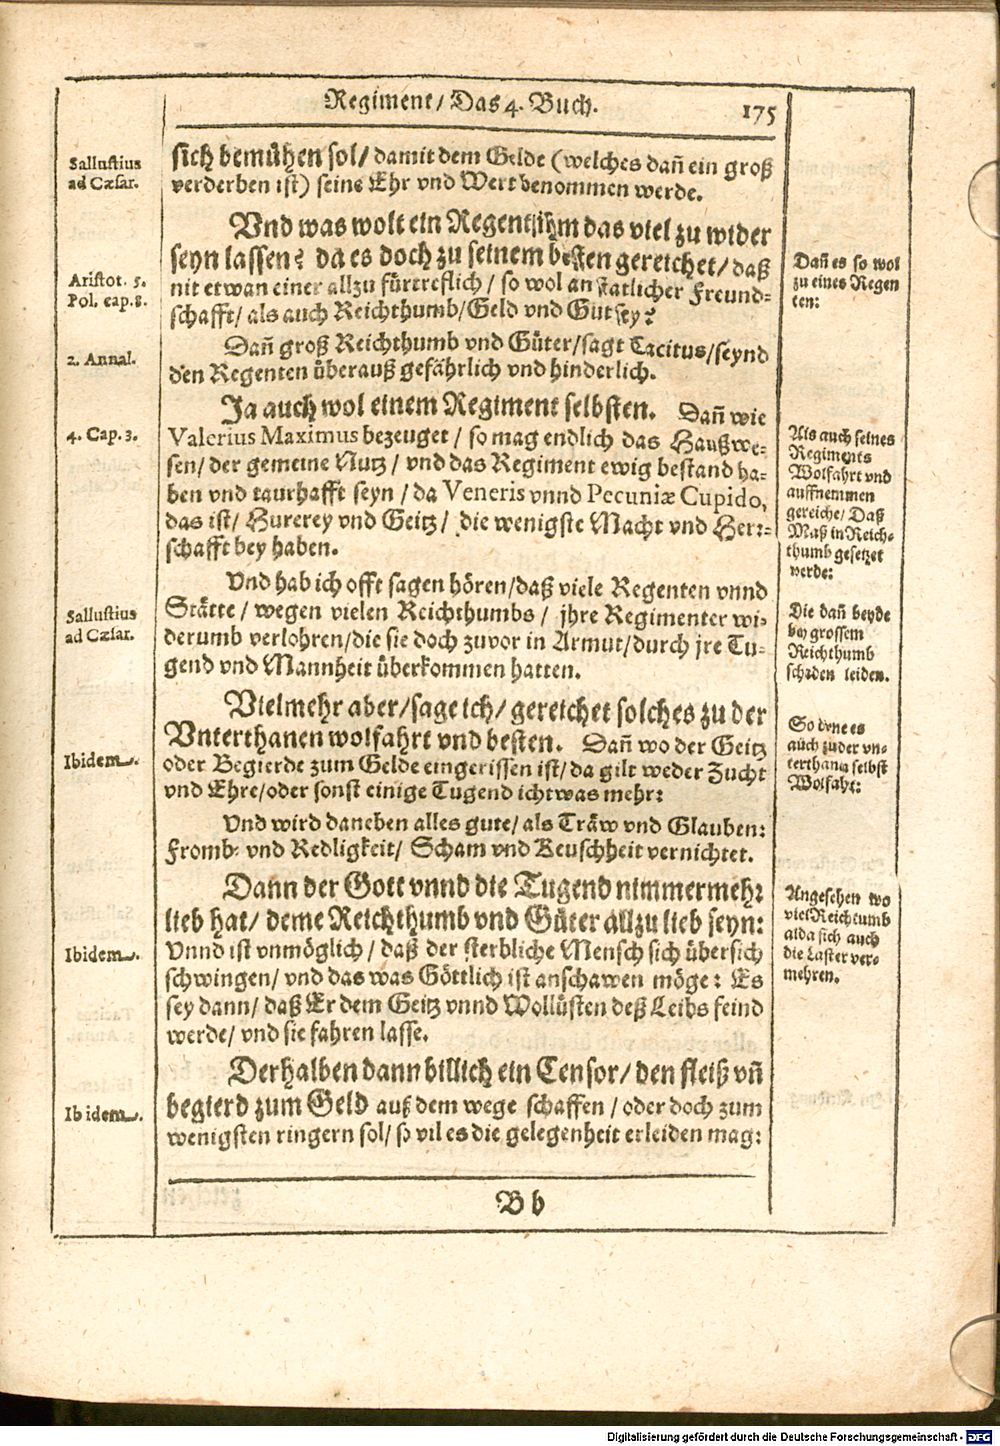 Regiment/ Das 4. Buch. 175
Sallustius
ad Cæsar.
sich bemühen sol/ damit dem Gelde (welches dañ ein groß
verderben ist) seine Ehr vnd Wert benommen werde.
Vnd was wolt ein Regent ihm das viel zu wider
seyn lassen? da es doch zu seinem besten gereichet/ daß
Aristot. 5.
Pol. cap. 8.
nit etwan einer allzu fürtreflich/ so wol an statlicher Freund-
schafft/ als auch Reichthumb/ Geld vnd Gut sey?
Dañ es so wol
zu eines Regen
ten:
2. Annal.
Dañ groß Reichthumb vnd Güter/ sagt Tacitus/ seynd
den Regenten überauß gefährlich vnd hinderlich.
Ja auch wol einem Regiment selbsten. Dañ wie
4. Cap. 3.
Valerius Maximus bezeuget/ so mag endlich das Haußwe-
sen/ der gemeine Nutz/ vnd das Regiment ewig bestand ha-
ben vnd taurhafft seyn/ da Veneris vnnd Pecuniæ Cupido,
das ist/ Hurerey vnd Geitz/ die wenigste Macht vnd Herr-
schafft bey haben.
Als auch seines
Regiments
Wolfahrt vnd
auffnemmen
gereiche/ Daß
Maß in Reich-
thumb gesetzet
werde:
Vnd hab ich offt sagen hören/ daß viele Regenten vnnd
Sallustius
ad Cæsar.
Stätte/ wegen vielen Reichthumbs/ jhre Regimenter wi-
derumb verlohren/ die sie doch zuvor in Armut/ durch jre Tu-
gend vnd Mannheit überkommen hatten.
Die dañ beyde
bey grossem
Reichthumb
schaden leiden.
Vielmehr aber/ sage ich/ gereichet solches zu der
Vnterthanen wolfahrt vnd besten. Dañ wo der Geitz
Ibidem.
oder Begierde zum Gelde eingerissen ist/ da gilt weder Zucht
vnd Ehre/ oder sonst einige Tugend ichtwas mehr:
So denn es
auch zu der vn-
terthanen selbst
Wolfaht:
Vnd wird daneben alles gute/ als Träw vnd Glauben:
Fromb- vnd Redligkeit/ Scham vnd Keuschheit vernichtet.
Dann der Gott vnnd die Tugend nimmermehr
lieb hat/ deme Reichthumb vnd Güter allzu lieb seyn:
Ibidem.
Vnnd ist vnmöglich/ daß der sterbliche Mensch sich übersich
schwingen/ vnd das was Göttlich ist anschawen möge: Es
sey dann/ daß Er dem Geitz vnnd Wollüsten deß Leibs feind
werde/ vnd sie fahren lasse.
Angesehen wo
viel Reichtumb
alda sich auch
die Laster ver-
mehren.
Derhalben dann billich ein Censor/ den fleiß vñ
Ibidem.
begierd zum Geld auß dem wege schaffen/ oder doch zum
wenigsten ringern sol/ so vil es die gelegenheit erleiden mag:
B b
Digitalisierung gefördert durch die Deutsche Forschungsgemeinschaft - DFG